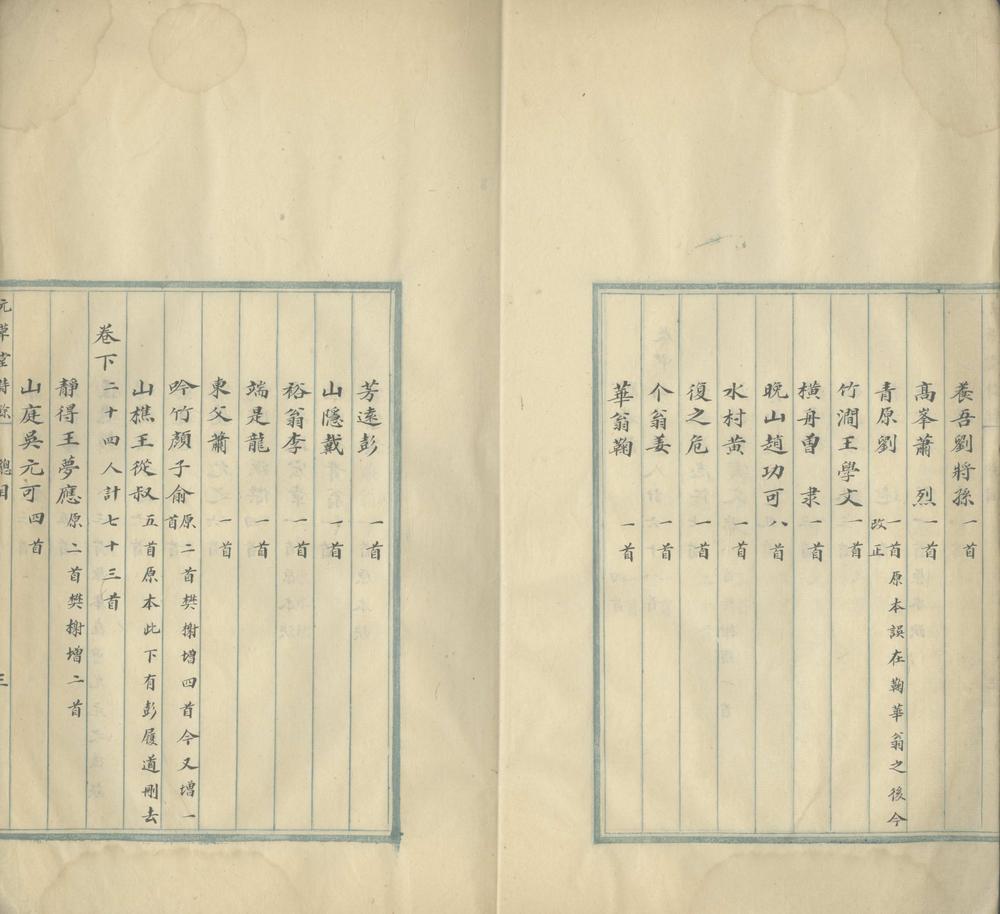 養吾劉將孫一首
高峯蕭　烈一首
青原劉　一首原本誤在鞠華翁之後今改正
竹澗王學文一首
橫舟曾　隶一首
晩山趙功可八首
水村黄　一首
復之危　一首
个翁姜　一首
華翁鞠　一首
芳遠彭　一首
山隱戴　一首
裕翁李　一首
端是龍　一首
東父蕭　一首
吟竹顏子俞原二首樊榭增四首今又增一首
山樵王從叔五首原本此下有彭履道刪去
卷下二十四人計七十三首
靜得王夢應原二首樊榭增二首
山庭吳元可四首
元草堂詩餘　總目　三